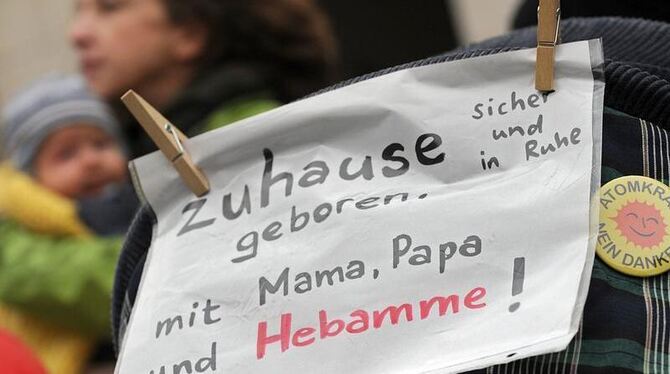 zuhause
geboren.
sicher
und
in Ruhe
mit Mama, Papa
und Hebamme!
ATOMKRA
NEIN DANKE